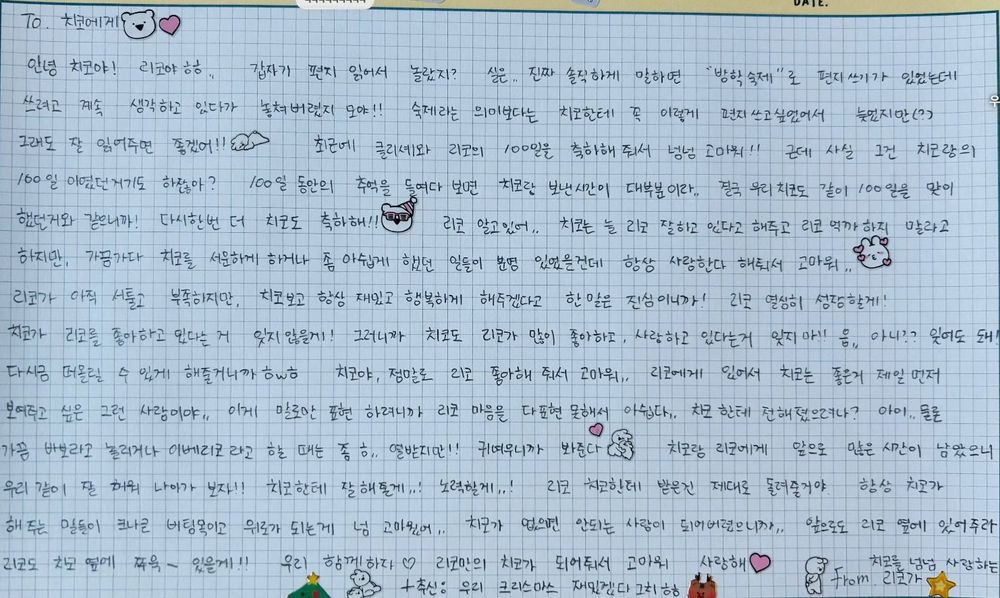 DATE.
To. 치코에게
안녕 치코야! 리코야ㅎㅎ.. 갑자기 편지 읽어서 놀랐지? 실은.. 진짜 솔직하게 말하면 "방학숙제"로 편지쓰기가 있었는데
쓰려고 계속 생각하고 있다가 놓쳐버렸지 모야!! 숙제라는 의미보다는 치코한테 꼭 이렇게 편지쓰고싶었어서 늦었지만(??)
그래도 잘 읽어주면 좋겠어!! 최근에 클리셰와 리코의 100일을 축하해줘서 넘넘 고마워!! 근데 사실 그건 치코랑의
100일 이었던거기도 하잖아? 100일 동안의 추억을 들여다 보면 치코랑 보낸시간이 대부분이라.. 결국 우리치코도 같이 100일을 맞이
했던거와 같으니까! 다시한번 더 치코도 축하해!! 리코 알고있어.. 치코는 늘 리코 잘하고 있다고 해주고 리코 억까하지 말라고
하지만, 가끔가다 치코를 서운하게 하거나 좀 아쉽게 했던 일들이 분명 있었을건데 항상 사랑한다 해줘서 고마워..
리코가 아직 서툴고 부족하지만, 치코보고 항상 재밌고 행복하게 해주겠다고 한말은 진심이니까! 리코 열심히 성장할게!
치코가 리코를 좋아하고 있다는 거 잊지않을게! 그러니까 치코도 리코가 많이 좋아하고, 사랑하고 있다는거 잊지마!! 음.. 아니?? 잊어도 돼!
다시금 떠올릴 수 있게 해줄거니까ㅎwㅎ 치코야, 정말로 리코 좋아해 줘서 고마워.. 리코에게 있어서 치코는 좋은거 제일 먼저
보여주고 싶은 그런 사람이야.. 이게 말로만 표현 하려니까 리코 마음을 다표현 못해서 아쉽다.. 치코한테 전해졌으려나? 아이.. 물론
가끔 바보라고 놀리거나 이베리코라고 할 때는 좀 ㅎ.. 열받지만!! 귀여우니까 봐준다 치코랑 리코에게 앞으로 많은 시간이 남았으니
우리같이 잘 헤쳐 나아가 보자!! 치코한테 잘해줄게..! 노력할게..! 리코 치코한테 받은건 제대로 돌려줄거야 항상 치코가
해주는 말들이 크나큰 버팀목이고 위로가 되는게 넘 고마웠어.. 치코가 없으면 안되는 사람이 되어버렸으니까.. 앞으로도 리코 옆에 있어주라
리코도 치코 옆에 쭈욱~ 있을게!! 우리 함께하자♡ 리코만의 치코가 되어줘서 고마워 사랑해
치코를 넘넘 사랑하는
From 리코가
+추신: 우리 크리스마스 재밌겠다 그치ㅎㅎ